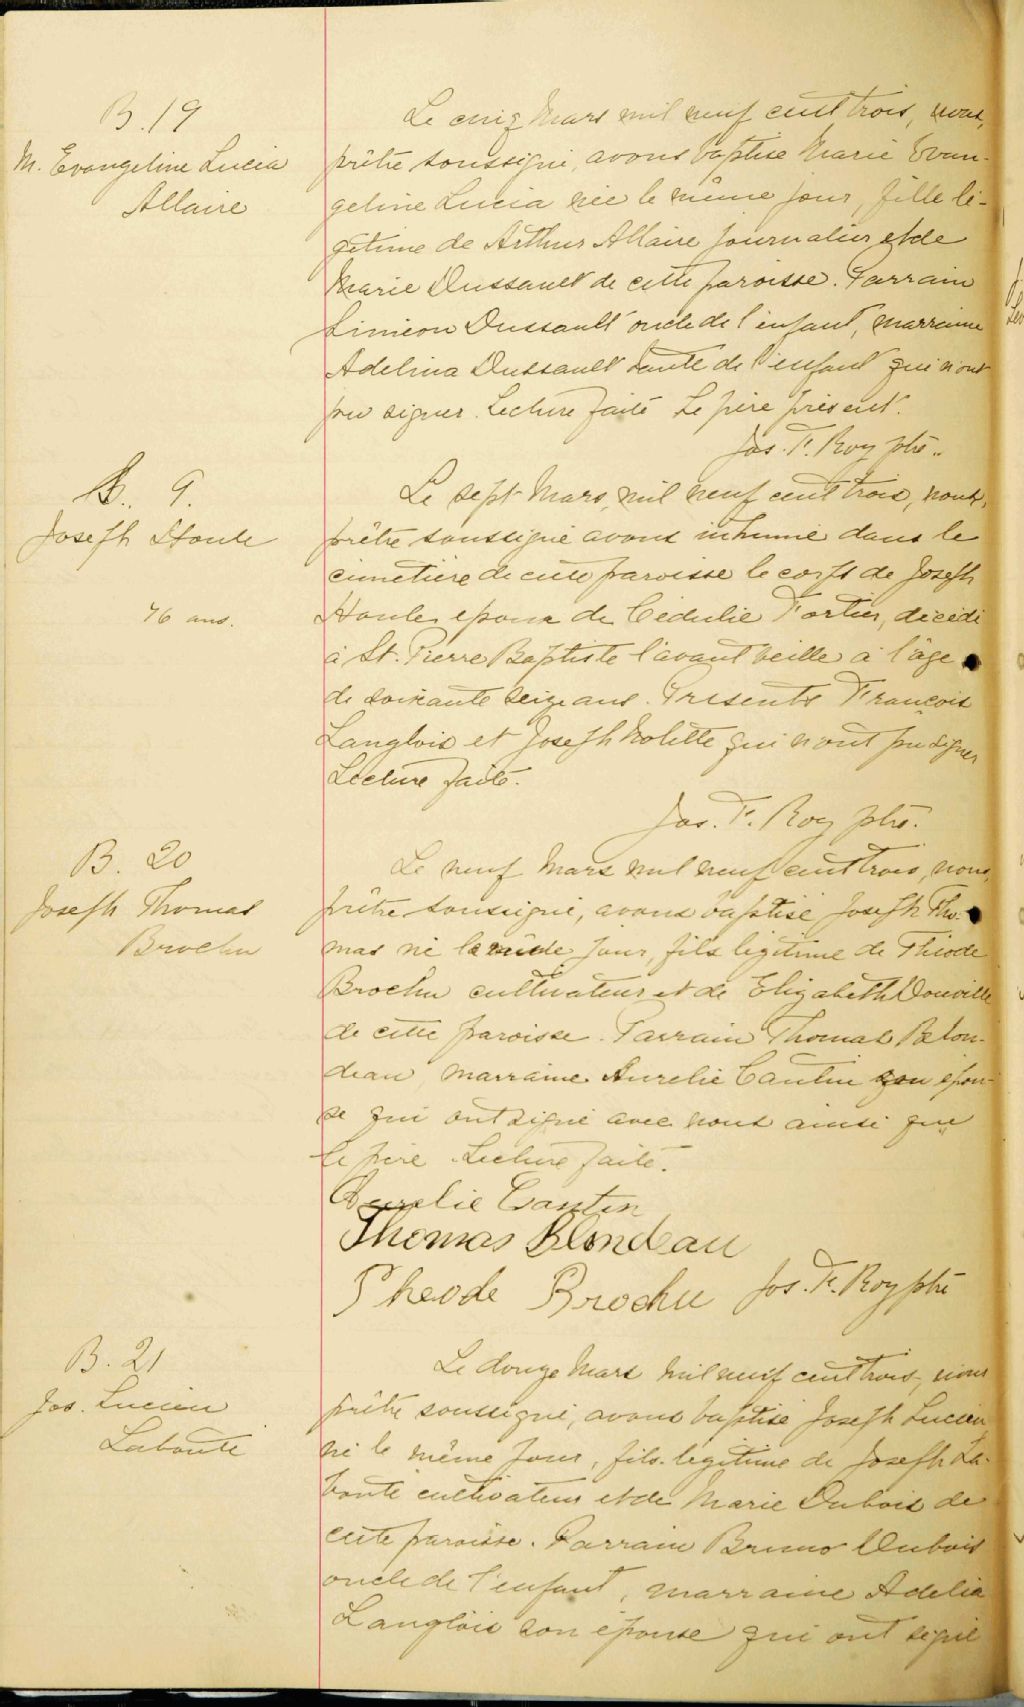 B. 19
M. Evangeline Lucia
Allaire
Le cinq Mars mil neuf cent trois, nous,
prêtre soussigné, avons baptise Marie Evan-
geline Lucia née le même jour, fille lé-
gitime de Arthur Allaire journalier et de
Marie Dussault de cette paroisse. Parrain
Siméon Dussault oncle de l'enfant, marraine
Adelina Dussault tante de l'enfant qui n'ont
pu signer. Lecture faite Le père présent.
Jos. F. Roy ptre.
S. 9.
Joseph Houle
76 ans.
Le sept Mars, mil neuf cent trois, nous,
prêtre soussigné avons inhumé dans le
cimetière de cette paroisse le corps de Joseph
Houle epoux de Cédulie Fortier, décédé
à St. Pierre Baptiste l'avant veille à l'âge
de soixante seize ans. Presents François
Langlois et Joseph Nolette qui n'ont pu signer
Lecture faite.
Jos. F. Roy ptre.
B. 20
Joseph Thomas
Brochu
Le neuf Mars mil neuf cent trois, nous,
prêtre soussigné, avons baptisé Joseph Tho-
mas né le jour, fils légitime de Théode
Brochu cultivateur et de Elizabeth Douville
de cette paroisse. Parrain Thomas Blon-
deau marraine Aurelie Cantin son épou-
se qui ont signé avec nous ainsi que
le père. Lecture faite.
Aurelie Cantin
Thomas Blondeau
Theode Brochu Jos. F. Roy ptre
B. 21
Jos. Lucien
Labonté
Le douze Mars mil neuf cent trois, nous
prêtre soussigné, avons baptisé Joseph Lucien
né le même jour, fils légitime de Joseph La-
bonté cultivateur et de Marie Dubois de
cette paroisse. Parrain Bruno Dubois
oncle de l'enfant, marraine Adelia
Langlois son épouse qui ont signé